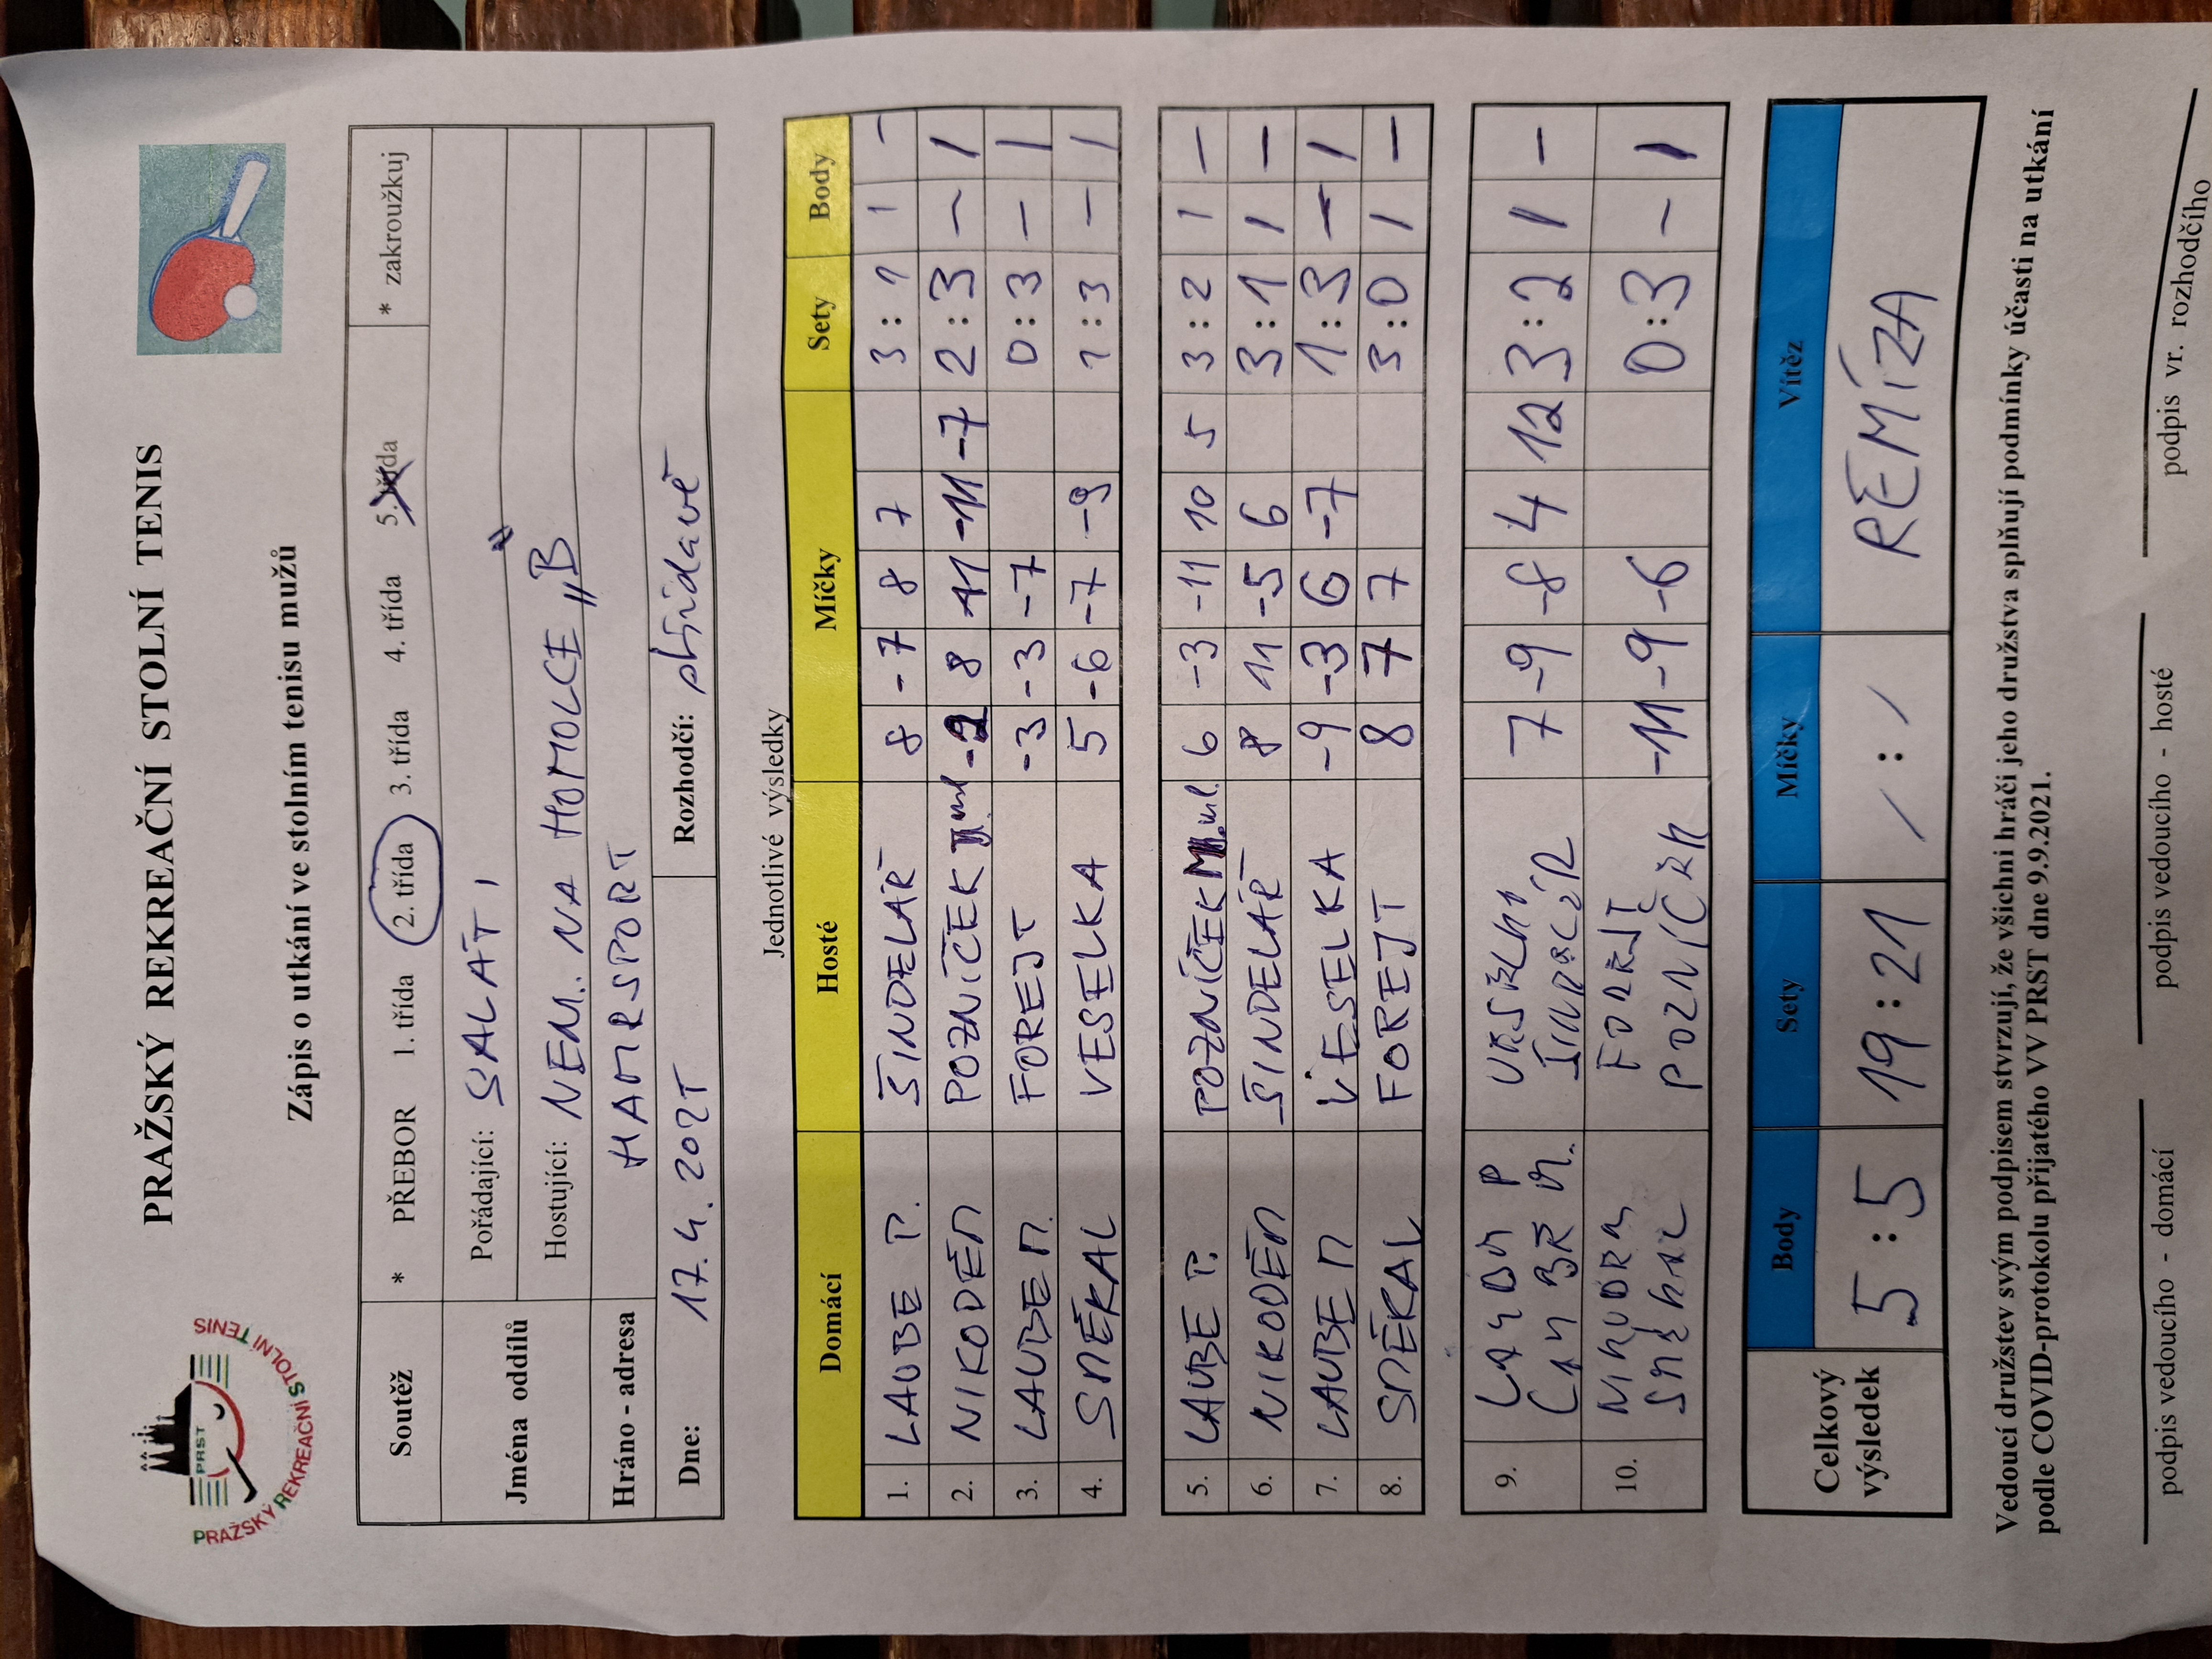 PRAŽSKÝ REKREAČNÍ STOLNÍ TENIS
PRST
PRAŽSKÝ REKREAČNÍ STOLNÍ TENIS
Zápis o utkání ve stolním tenisu mužů
Soutěž * PŘEBOR 1. třída 2. třída 3. třída 4. třída 5. třída * zakroužkuj
Jména oddílů Pořádající: SALÁTI
Hostující: NEM. NA HOMOLCE „B"
Hráno - adresa HAMRSPORT
Dne: 17.4.2025 Rozhodčí: střídavě
Jednotlivé výsledky
Domácí Hosté Míčky Sety Body
1. LAUBE P. ŠINDELÁŘ 8 -7 8 7 3 : 1 1 -
2. NIKODÉM POZNÍČEK ml. -2 8 11 -11 -7 2 : 3 - 1
3. LAUBE M. FOREJT -3 -3 -7 0 : 3 - 1
4. SMÉKAL VESELKA 5 -6 -7 -9 1 : 3 - 1
5. LAUBE P. POZNÍČEK ml. 6 -3 -11 10 5 3 : 2 1 -
6. NIKODÉM ŠINDELÁŘ 8 11 -5 6 3 : 1 1 -
7. LAUBE M VESELKA -9 -3 6 -7 1 : 3 - 1
8. SMÉKAL FOREJT 8 7 7 3 : 0 1 -
9. 7 -9 -8 4 12 3 : 2 1 -
10. FOREJT -11 -9 -6 0 : 3 - 1
POZNÍČEK
Celkový výsledek Body Sety Míčky Vítěz
5 : 5 19 : 21 / : / REMÍZA
Vedoucí družstev svým podpisem stvrzují, že všichni hráči jeho družstva splňují podmínky účasti na utkání
podle COVID-protokolu přijatého VV PRST dne 9.9.2021.
podpis vedoucího - domácí podpis vedoucího - hosté podpis vr. rozhodčího